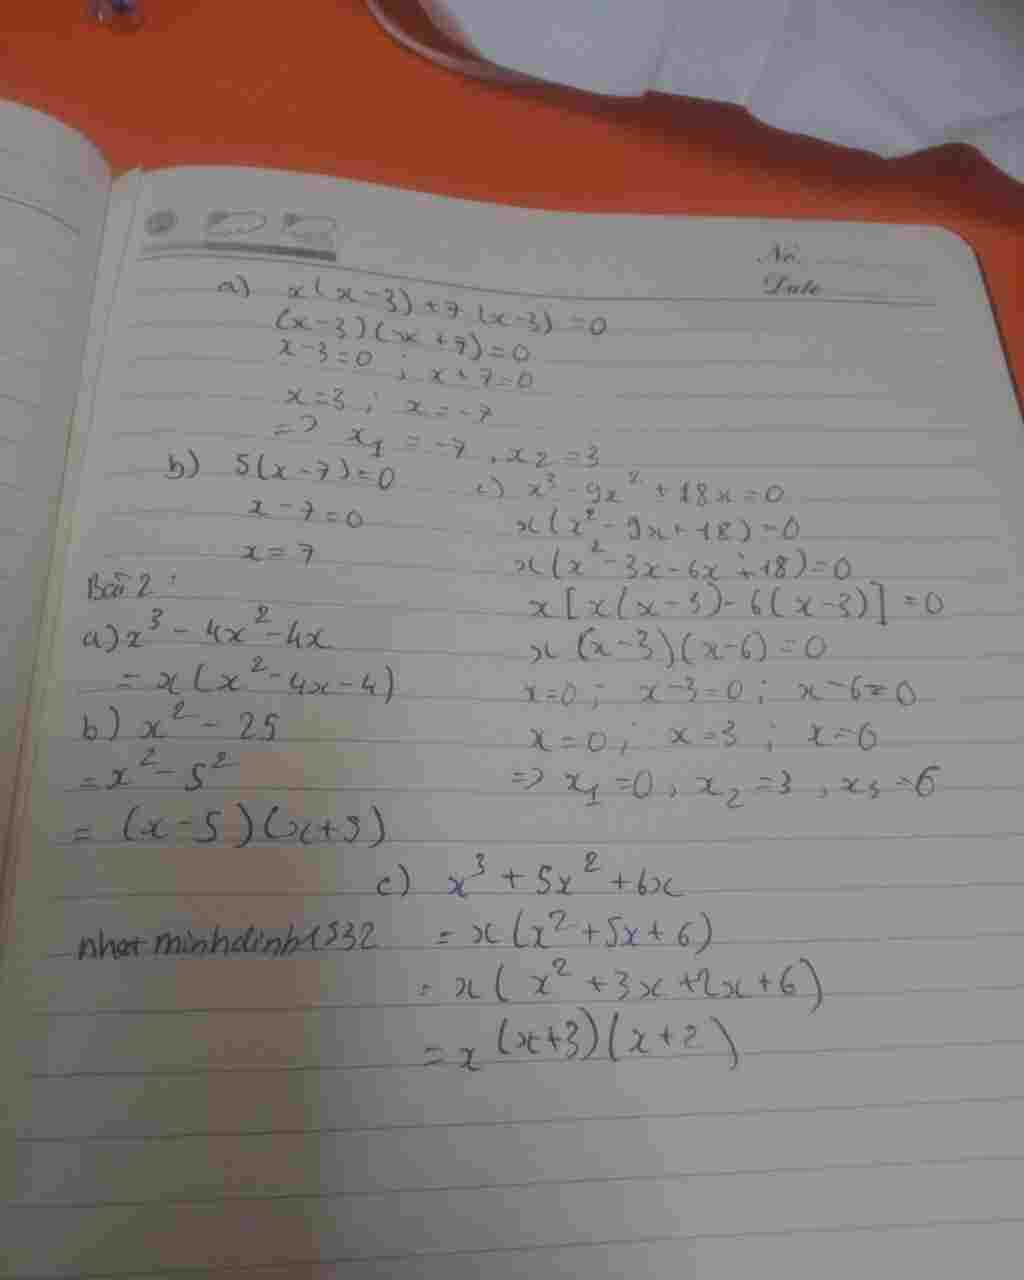 No.
Date
a) x(x-3)+7(x-3)=0
(x-3)(x+7)=0
x-3=0 ; x+7=0
x=3 ; x=-7
=> x₁=-7, x₂=3
b) 5(x-7)=0
x-7=0
x=7
c) x³-9x²+18x=0
x(x²-9x+18)=0
x(x²-3x-6x+18)=0
x[x(x-3)-6(x-3)]=0
x(x-3)(x-6)=0
x=0; x-3=0; x-6=0
x=0; x=3; x=6
=> x₁=0, x₂=3, x₃=6
Bài 2:
a) x³-4x²-4x
=x(x²-4x-4)
b) x²-25
=x²-5²
=(x-5)(x+5)
c) x³+5x²+6x
=x(x²+5x+6)
=x(x²+3x+2x+6)
=x(x+3)(x+2)
nhatminhdinh1532